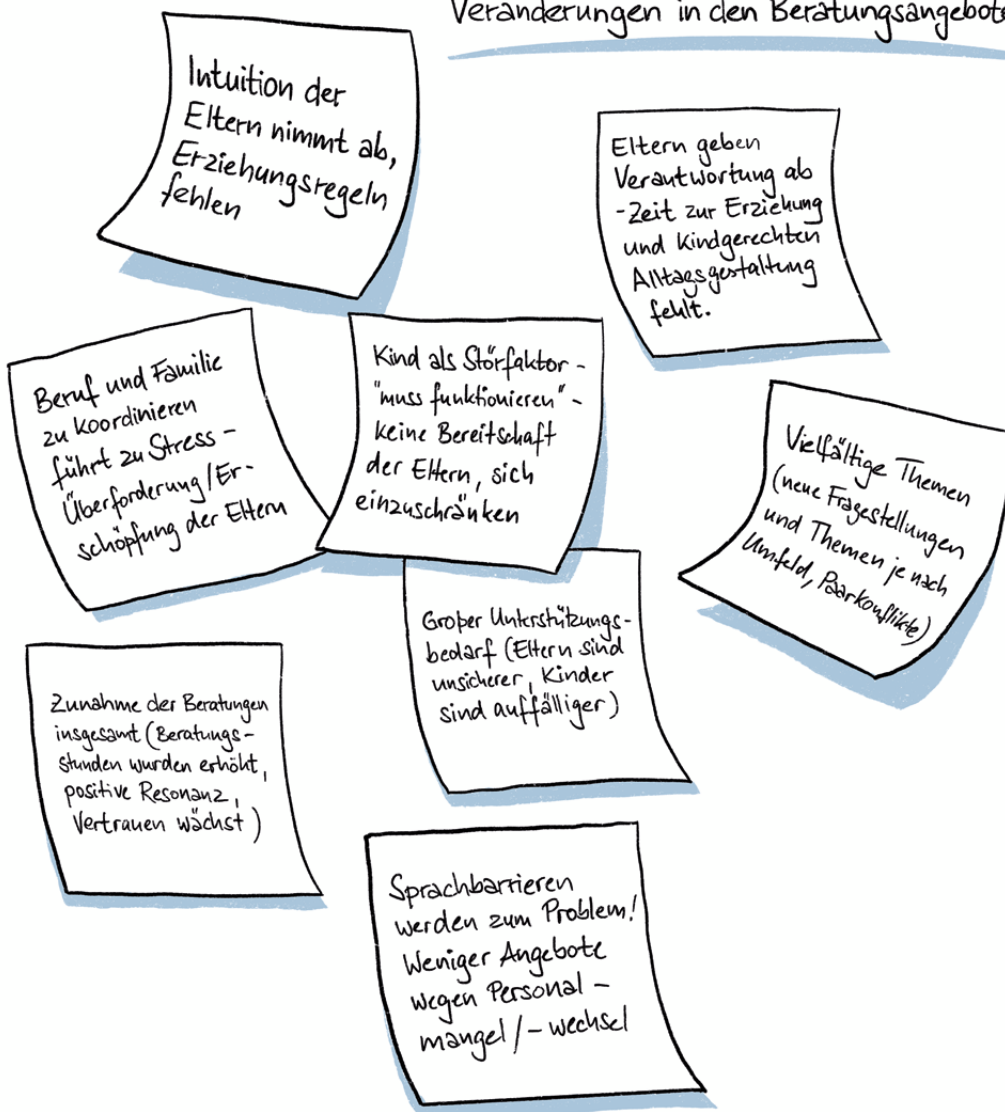 Veränderungen in den Beratungsangebote
Intuition der
Eltern nimmt ab,
Erziehungsregeln
fehlen
Eltern geben
Verantwortung ab
-Zeit zur Erziehung
und kindgerechten
Alltagsgestaltung
fehlt.
Beruf und Familie
zu koordinieren
führt zu Stress -
Überforderung/Er-
schöpfung der Eltern
Kind als Störfaktor -
"muss funktionieren" -
keine Bereitschaft
der Eltern, sich
einzuschränken
Vielfältige Themen
(neue Fragestellungen
und Themen je nach
Umfeld, Paarkonflikte)
Großer Unterstützungs-
bedarf (Eltern sind
unsicherer, Kinder
sind auffälliger)
Zunahme der Beratungen
insgesamt (Beratungs-
stunden wurden erhöht,
positive Resonanz,
Vertrauen wächst)
Sprachbarrieren
werden zum Problem!
Weniger Angebote
wegen Personal -
mangel/-wechsel